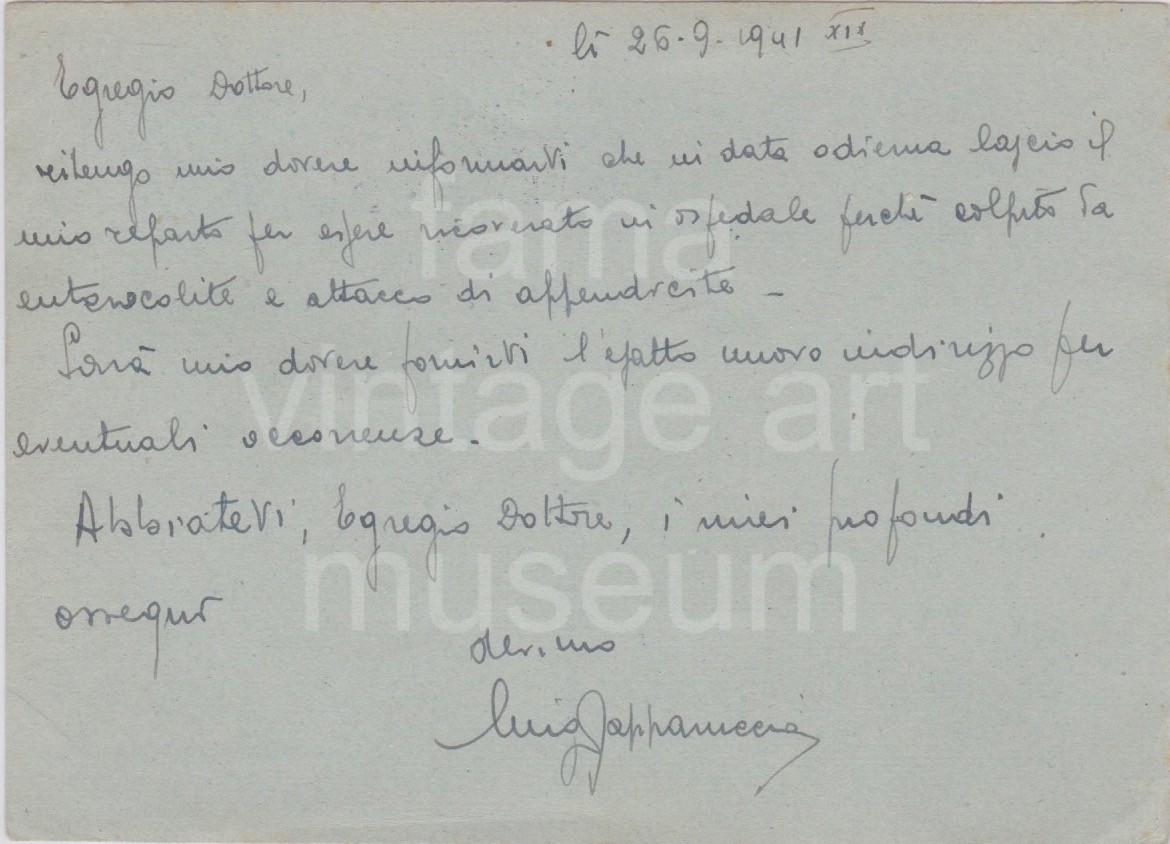 lì 26-9-1941 XIX
Egregio Dottore,
ritengo mio dovere informarvi che in data odierna lascio il
mio reparto per essere ricoverato in ospedale perchè colpito da
enterocolite e attacco di appendicite -
Sarà mio dovere fornirvi l'esatto nuovo indirizzo per
eventuali occorrenze -
Abbiatevi, Egregio Dottore, i miei profondi
ossequi
dev.mo
Luigi
fama
vintage art
museum